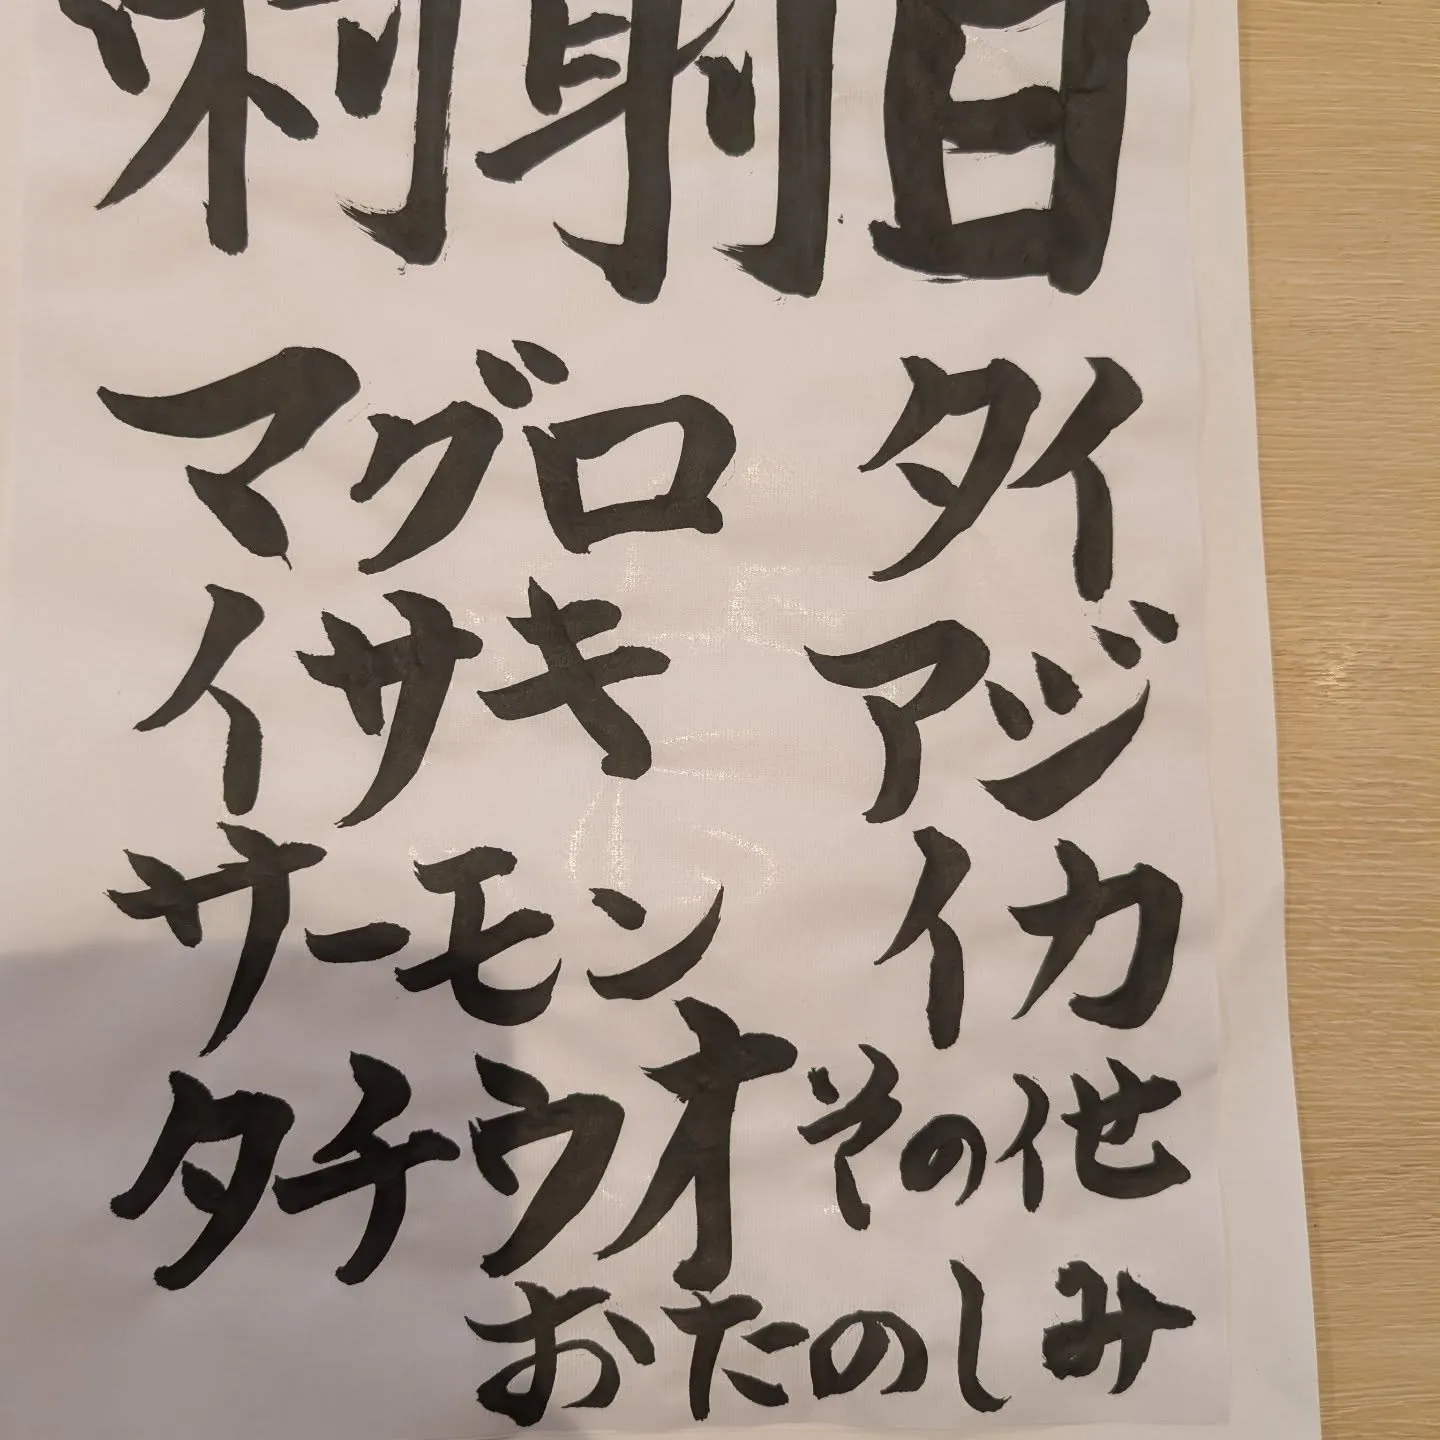 マグロ タイ
イサキ アジ
サーモン イカ
タチウオ その他
おたのしみ